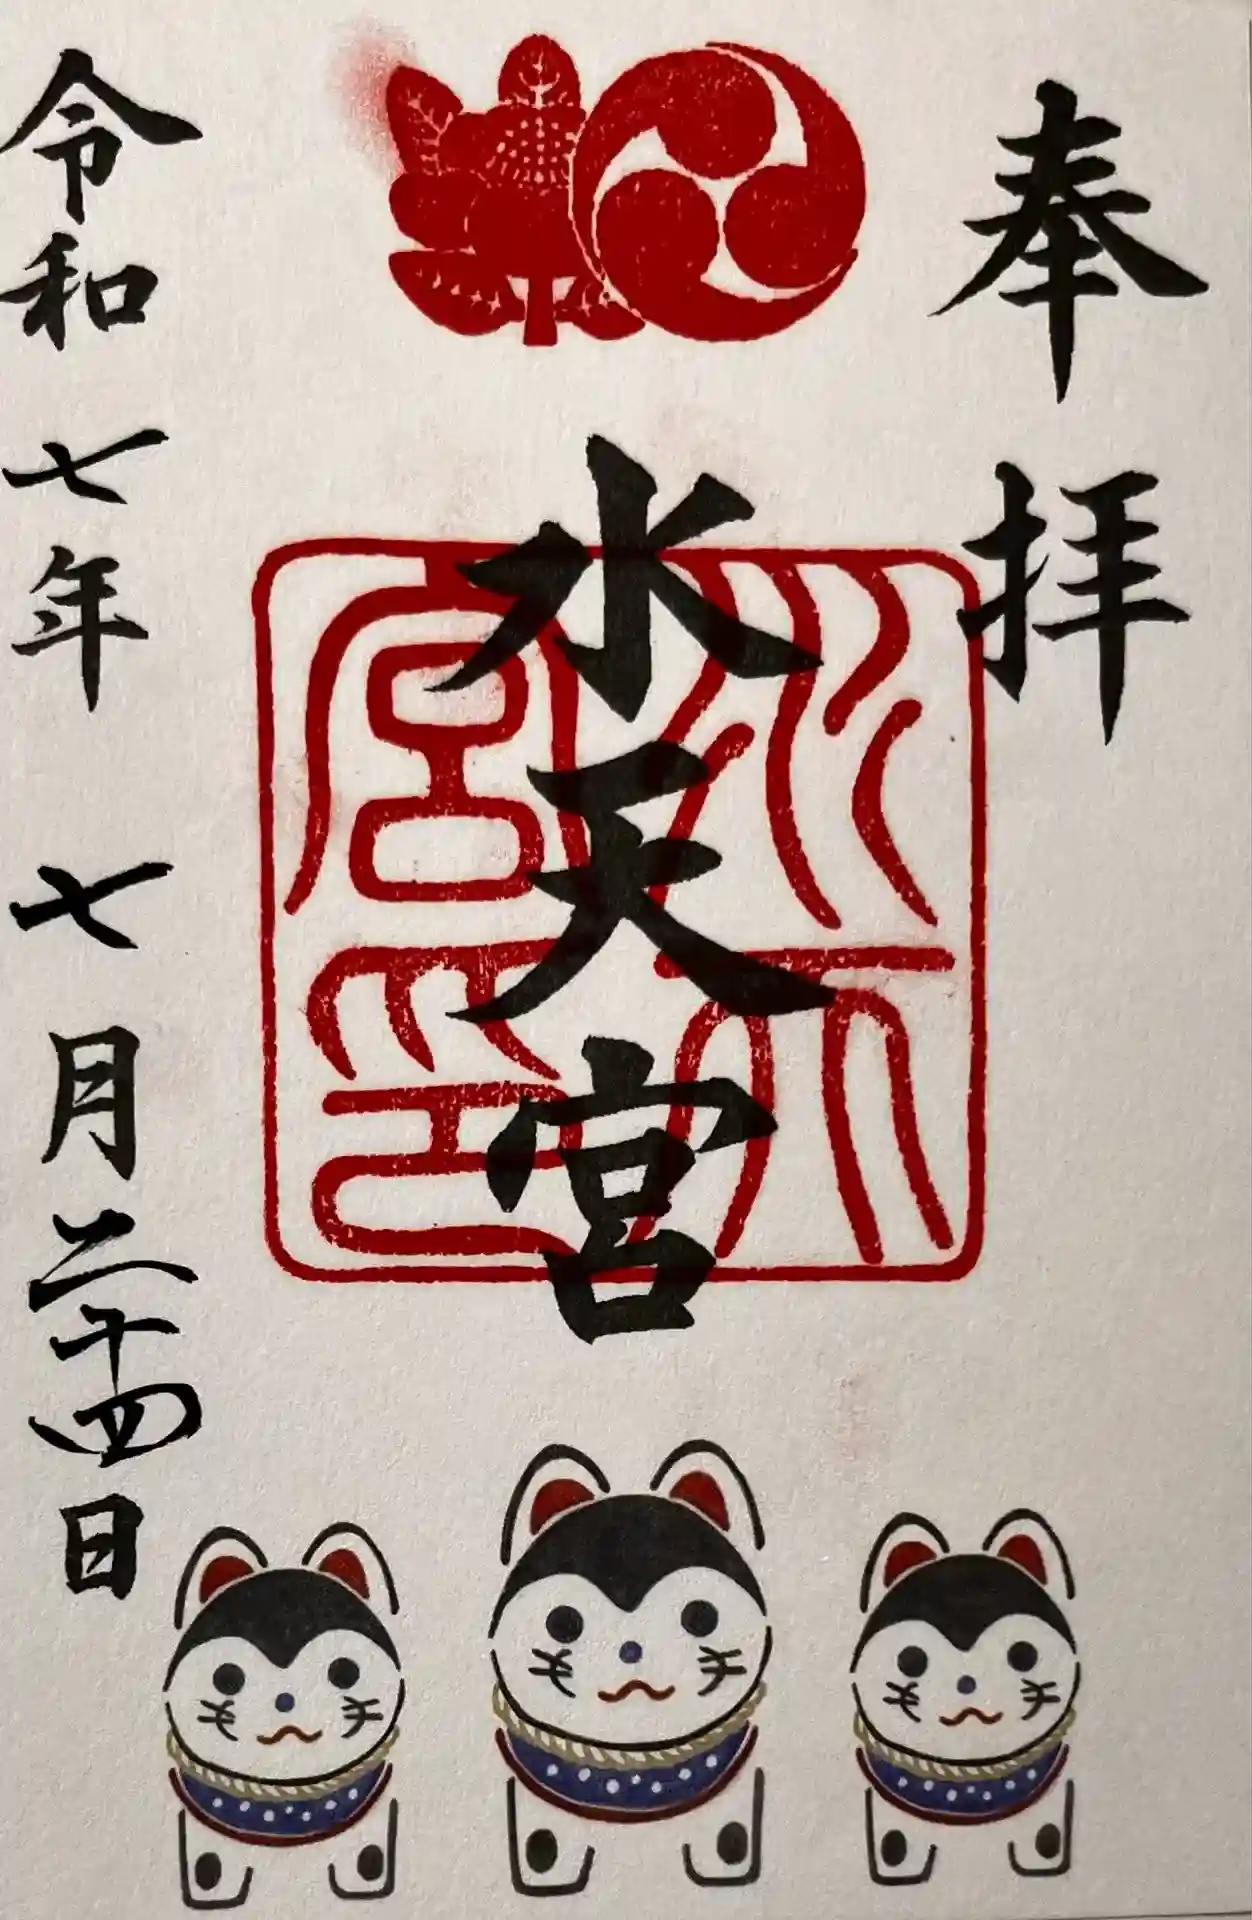 奉拝
水天宮
水天宮印
令和七年七月二十四日